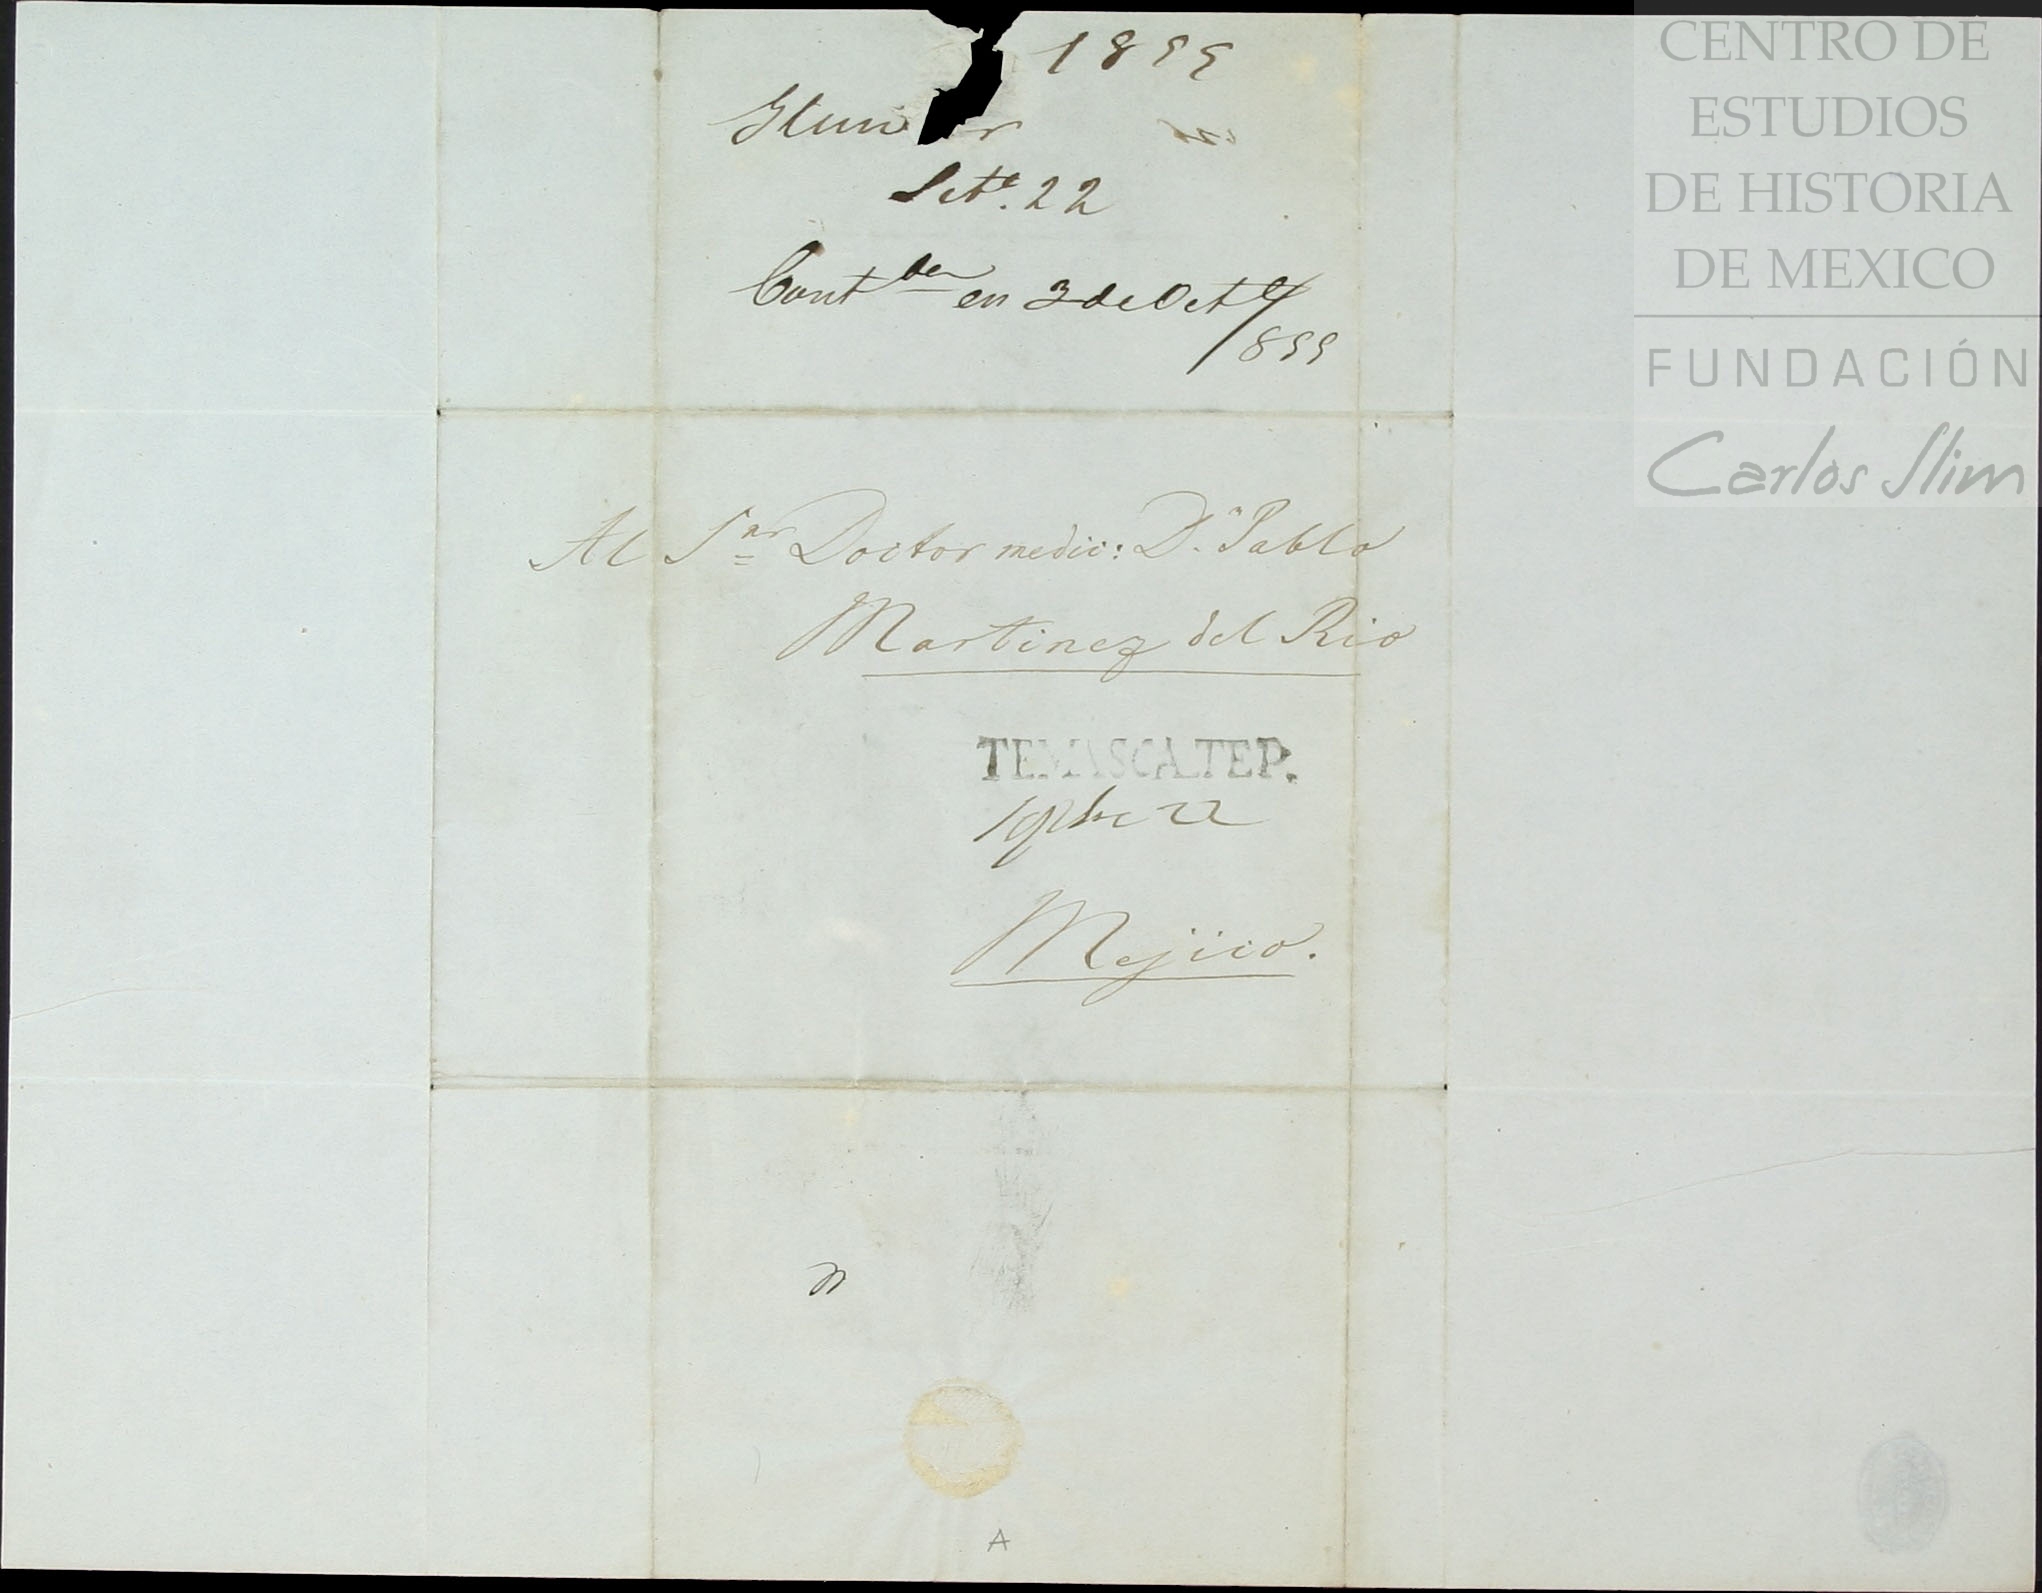 1855
Set.e 22
Cont.da en 3 de Oct.e/
855
Al S.or Doctor medic: D.n Pablo
Martinez del Rio
TEMASCALTEP.
22
Mejico.
A
CENTRO DE
ESTUDIOS
DE HISTORIA
DE MEXICO
FUNDACIÓN
Carlos Slim